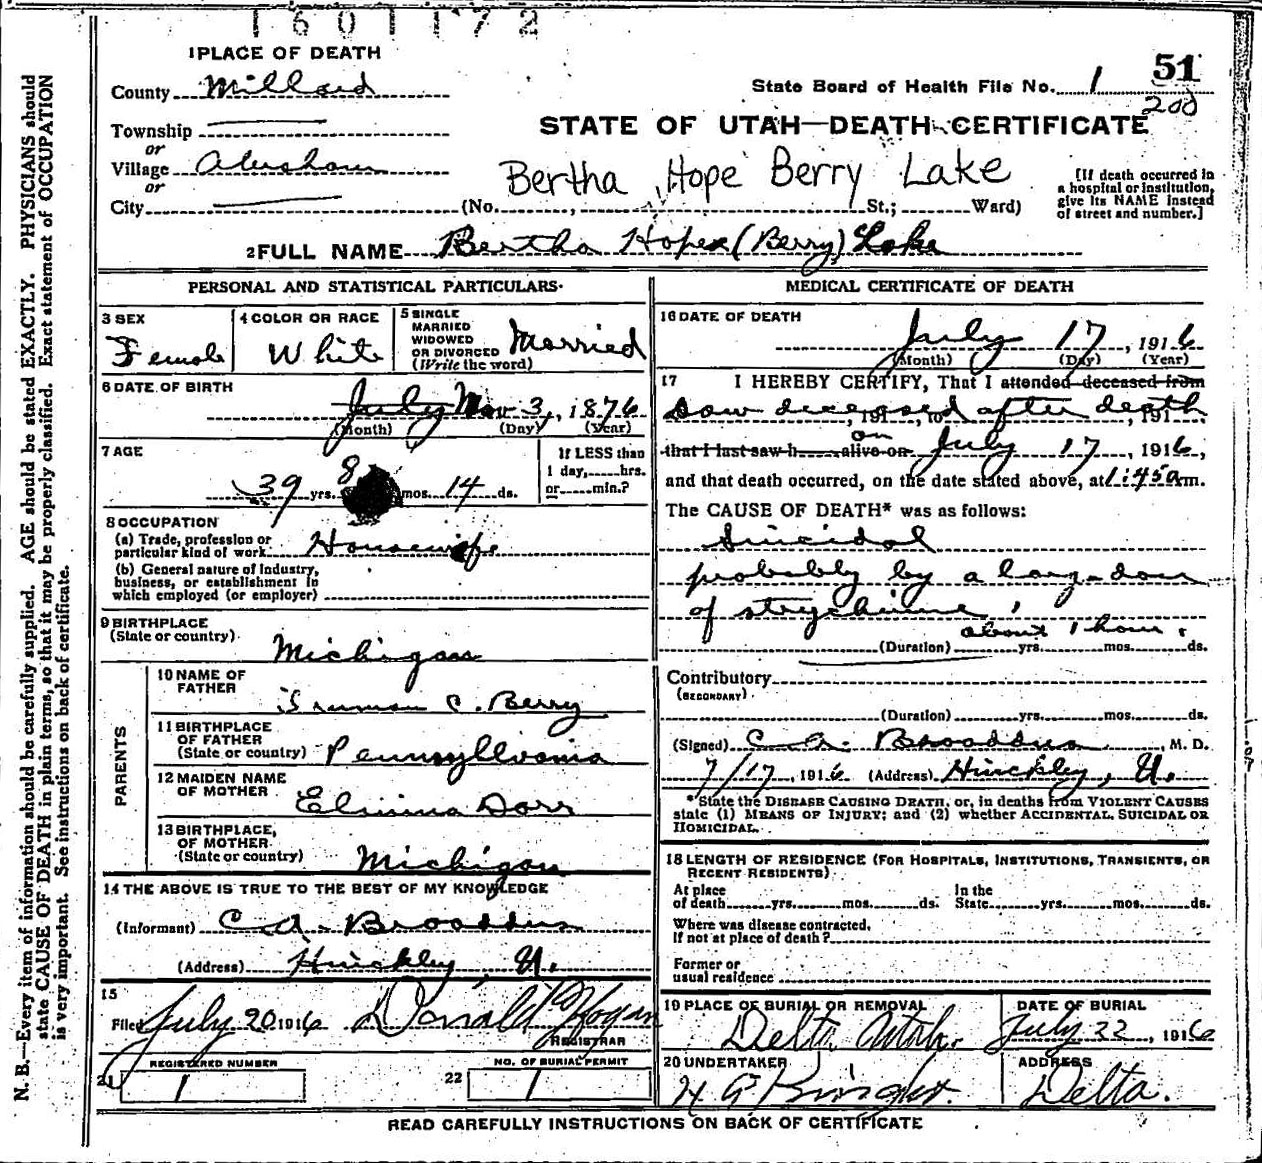 1601172
1 PLACE OF DEATH
51
County Millard
State Board of Health File No. 1
200
Township
or
STATE OF UTAH—DEATH CERTIFICATE
Village
or
Bertha Hope Berry Lake
[If death occurred in
a hospital or institution,
give its NAME instead
of street and number.]
City (No. , St.; Ward)
2 FULL NAME Bertha Hope (Berry) Lake
PERSONAL AND STATISTICAL PARTICULARS
3 SEX
Female
4 COLOR OR RACE
White
5 SINGLE
MARRIED
WIDOWED
OR DIVORCED
(Write the word)
Married
6 DATE OF BIRTH
July Nov 3, 1876
(Month) (Day) (Year)
7 AGE
39 yrs. 8 mos. 14 ds.
If LESS than
1 day, hrs.
or min.?
8 OCCUPATION
(a) Trade, profession or
particular kind of work Housewife
(b) General nature of industry,
business, or establishment in
which employed (or employer)
9 BIRTHPLACE
(State or country)
Michigan
PARENTS
10 NAME OF
FATHER
Truman C. Berry
11 BIRTHPLACE
OF FATHER
(State or country) Pennsyllvania
12 MAIDEN NAME
OF MOTHER
Elmina Dorr
13 BIRTHPLACE
OF MOTHER
(State or country)
Michigan
14 THE ABOVE IS TRUE TO THE BEST OF MY KNOWLEDGE
(Informant) C. A. Broaddus
(Address) Hinckley, U.
15
Filed July 20 1916 Donald Hogan
REGISTRAR
21 REGISTERED NUMBER
1
22 NO. OF BURIAL PERMIT
1
MEDICAL CERTIFICATE OF DEATH
16 DATE OF DEATH
July 17, 1916
(Month) (Day) (Year)
17 I HEREBY CERTIFY, That I attended deceased from
saw deceased after death
, 191 , to , 191 ,
that I last saw h alive on on July 17, 1916,
and that death occurred, on the date stated above, at 1:45 a m.
The CAUSE OF DEATH* was as follows:
Suicidal
probably by a large dose
of strychnine,
about 1 hour.
(Duration) yrs. mos. ds.
Contributory
(SECONDARY)
(Duration) yrs. mos. ds.
(Signed) C. A. Broaddus, M. D.
7/17, 1916 (Address) Hinckley, U.
*State the DISEASE CAUSING DEATH, or, in deaths from VIOLENT CAUSES
state (1) MEANS OF INJURY; and (2) whether ACCIDENTAL, SUICIDAL OR
HOMICIDAL.
18 LENGTH OF RESIDENCE (FOR HOSPITALS, INSTITUTIONS, TRANSIENTS, OR
RECENT RESIDENTS)
At place
of death yrs. mos. ds.
In the
State yrs. mos. ds.
Where was disease contracted,
If not at place of death?
Former or
usual residence
19 PLACE OF BURIAL OR REMOVAL
Delta Utah.
DATE OF BURIAL
July 22, 1916
20 UNDERTAKER
ADDRESS
Delta.
READ CAREFULLY INSTRUCTIONS ON BACK OF CERTIFICATE
N. B.—Every item of information should be carefully supplied. AGE should be stated EXACTLY. PHYSICIANS should
state CAUSE OF DEATH in plain terms, so that it may be properly classified. Exact statement of OCCUPATION
is very important. See instructions on back of certificate.